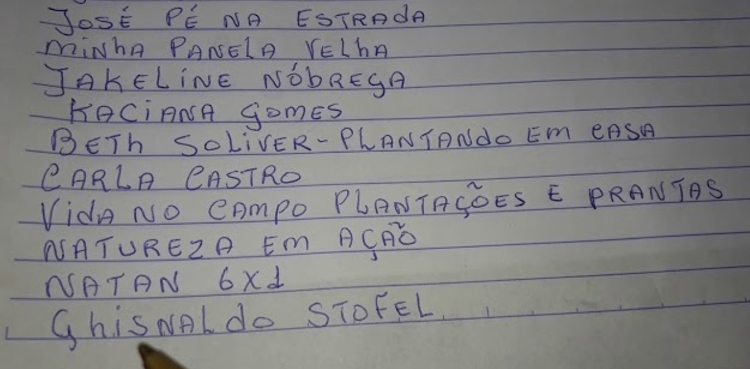 José PÉ NA ESTRAdA
MiNhA PANELA VELhA
JAKELiNE NÓbREgA
KACiANA gOMES
BETh SOLiVER-PLANTANdO EM CASA
CARLA CASTRO
VidA NO CAMPO PLANTAÇÕES E PRANTAS
NATUREZA EM AÇÃO
NATAN 6X1
GhiSNALdO STOFEL